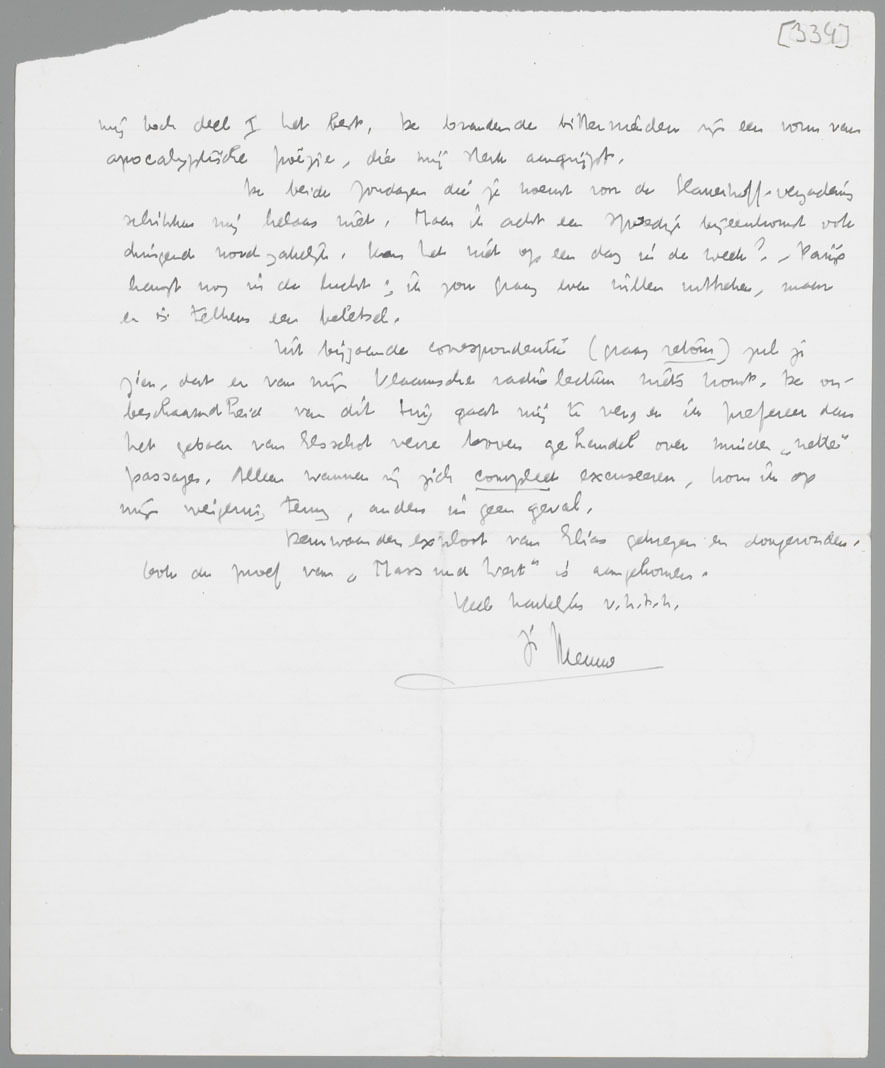 [334]
mij toch deel I het best. De brandende bittermeiden zijn een vorm van
apocalyptische poëzie, die mij sterk aangrijpt.
De beide Zondagen die je noemt voor de Slauerhoff-vergadering
schikken mij helaas niet. Maar ik acht een spoedige bijeenkomst ook
dringend noodzakelijk. Kan het niet op een dag in de week? - Parijs
hangt nog in de lucht; ik zou graag even willen uittrekken, maar
er is telkens een beletsel.
Uit bijgaande correspondentie (graag retour) zul je
zien, dat er van mijn Vlaamsche radiolectuur niets komt. De on-
beschaamdheid van dit tuig gaat mij te ver, en ik prefereer dan
het gebaar van Elsschot verre boven gehandel over minder „nette”
passages. Alleen wanneer zij zich compleet excuseeren, kom ik op
mijn weigering terug, anders in geen geval.
exploot van Elias gekregen en doorgezonden.
Ook de proef van „Mass und Wert” is aangekomen.
Veel hartelijks v.h.t.h.
je Menno